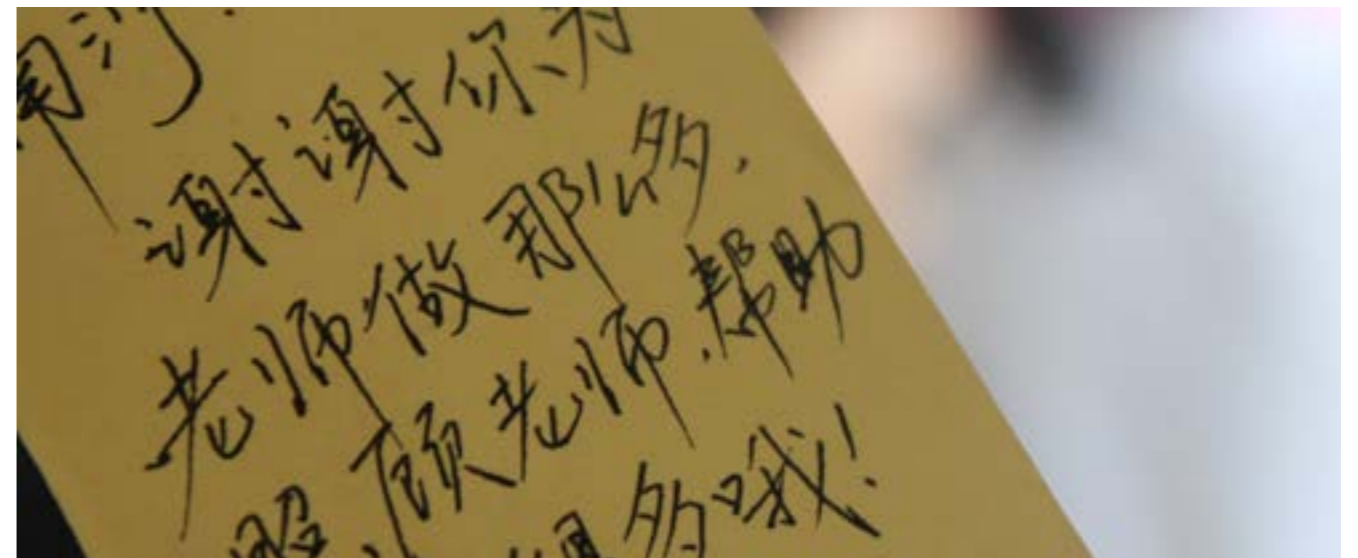 谢谢你为
老师做那多,
照顾老师,帮助
多哦!